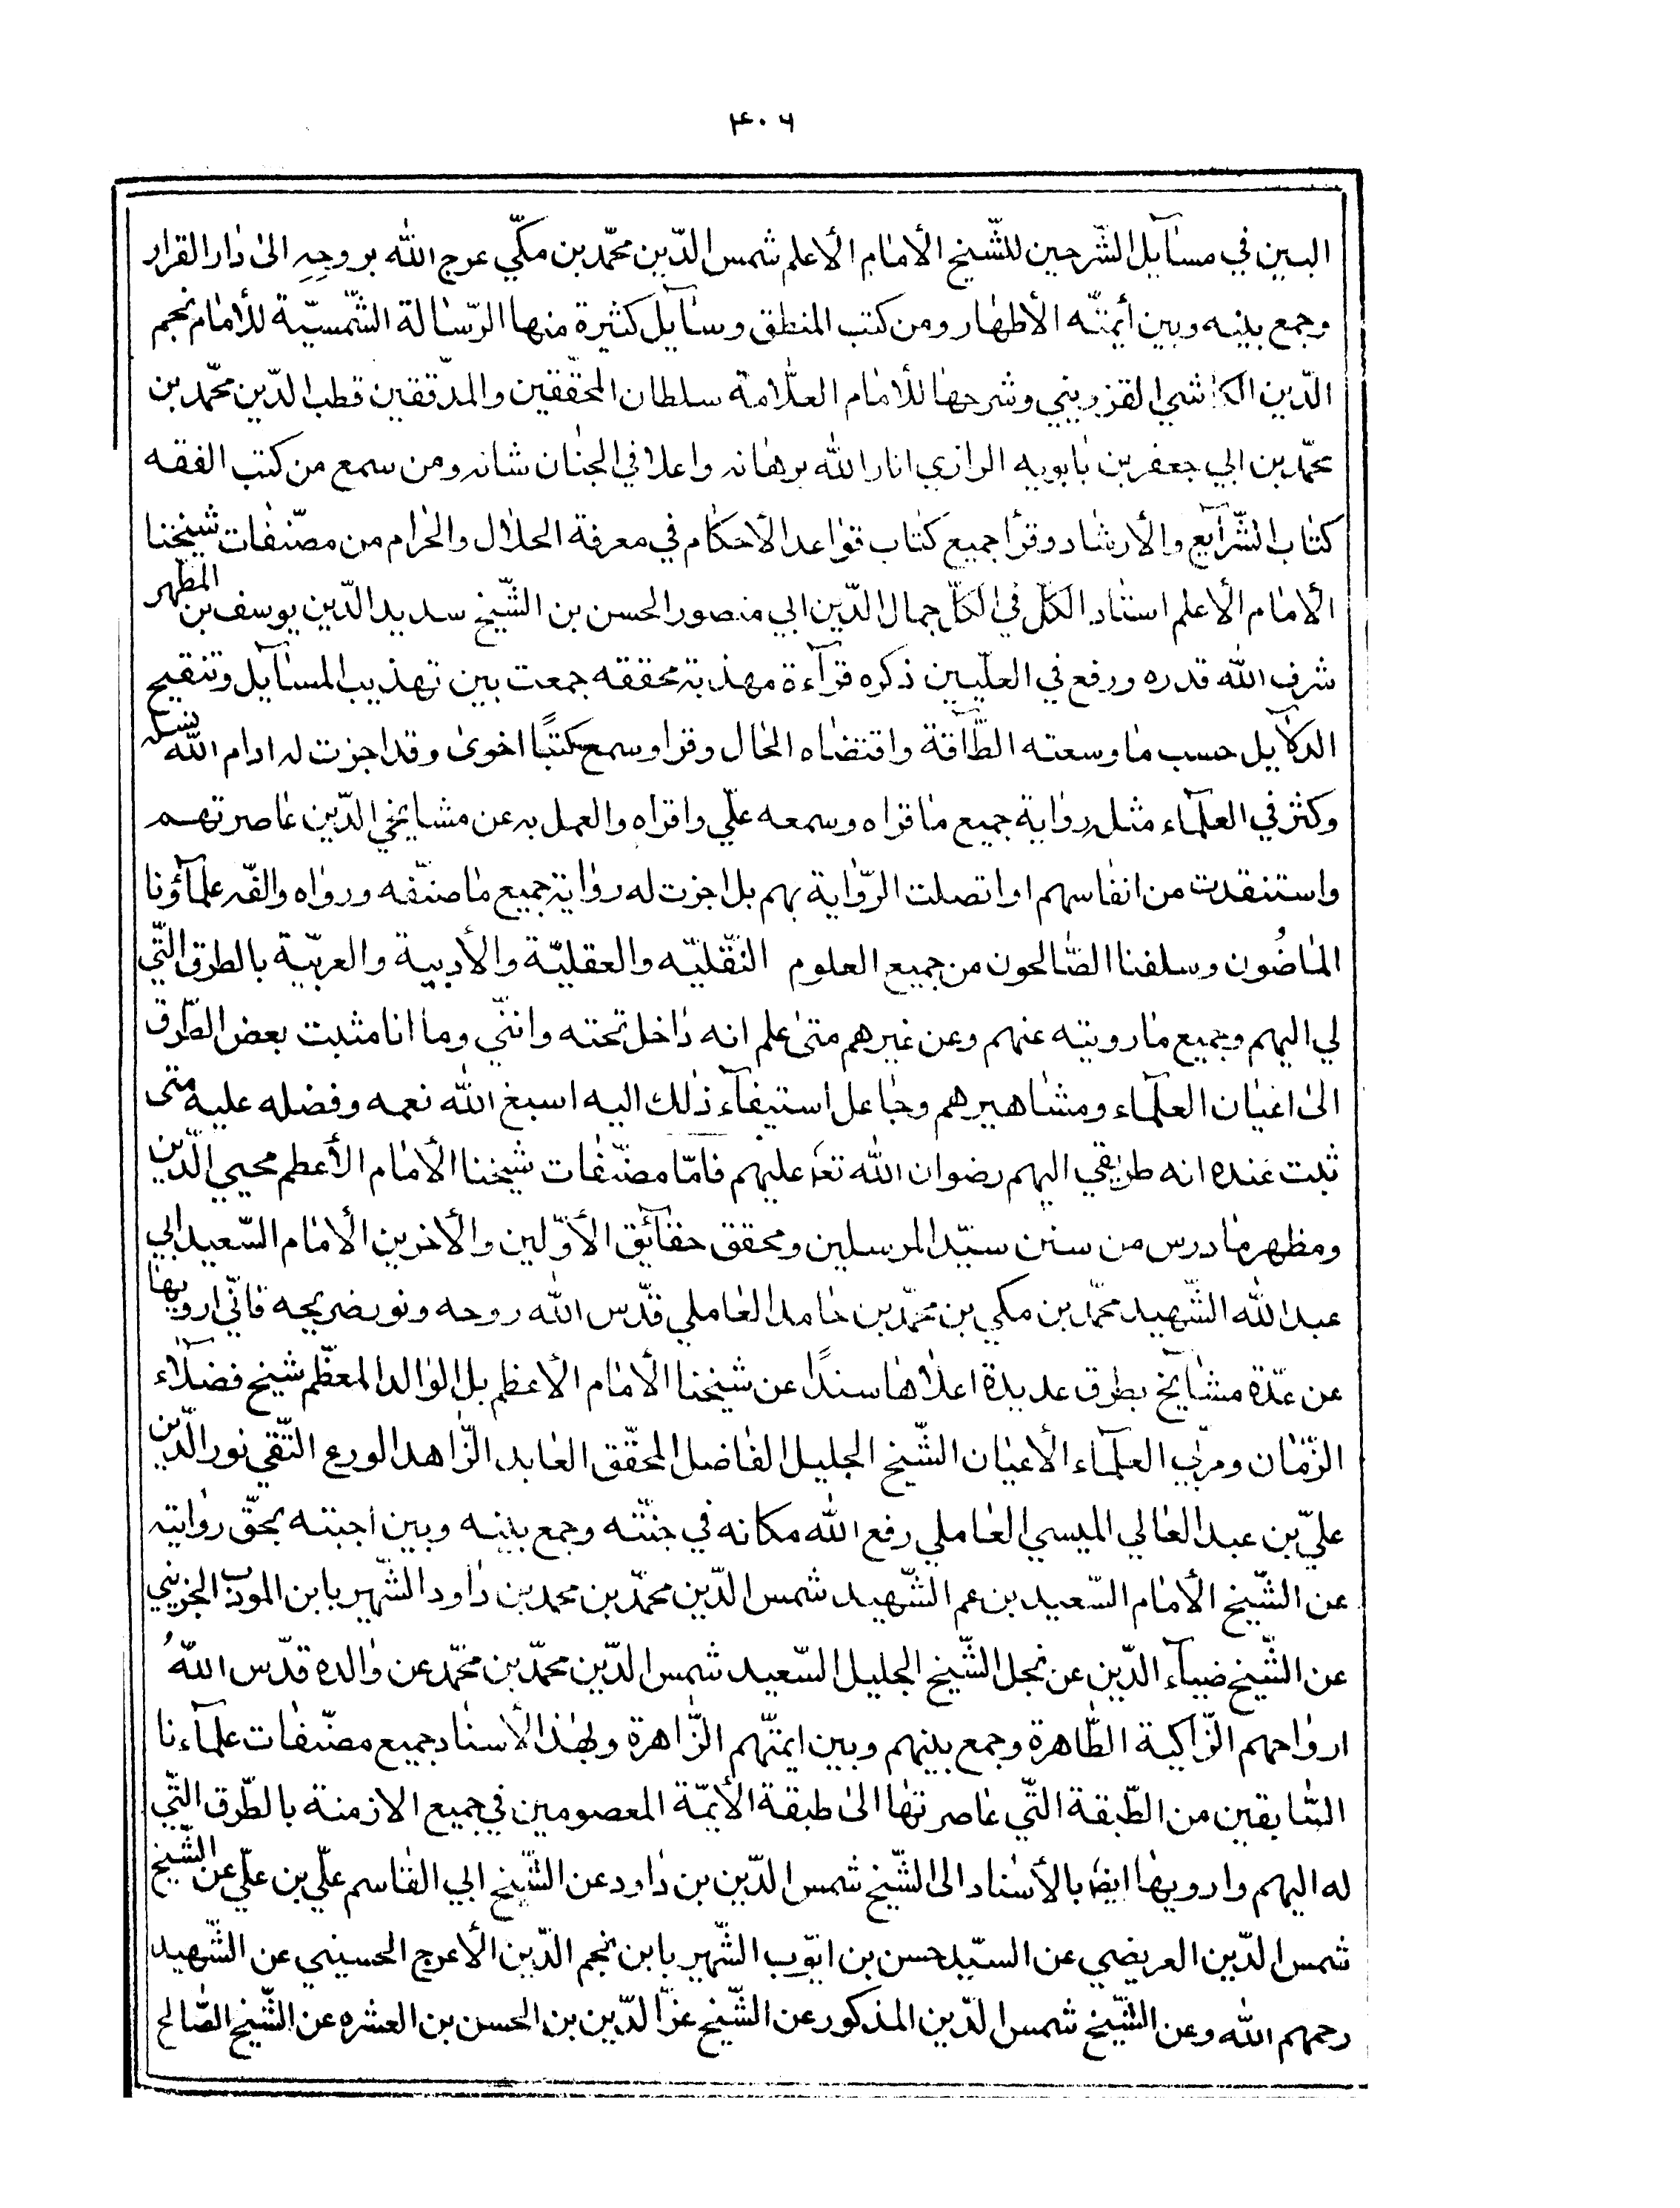 ٤٠٦
البين في مسآيل الشّرحين للشّيخ الأمام الأعلم شمس الدّين محمّد بن مكّي عرج الله بروجِهِ الى دار القرار
وجمع بينه وبين أيمتّه الأطهار ومن كتب المنطق وسآيل كثيرة منها الرّسالة الشّمسيّة للأمام نجم
الدّين الكاشي القزويني وشرحها للأمام العلّامة سلطان المحقّقين والمدقّقين قطب الدّين محمّد بن
محمّد بن ابي جعفر بن بابويه الرازي انار الله برهانه واعلا في الجنان شانه ومن سمع من كتب الفقه
كتاب الشّرآيع والأرشاد وقرأ جميع كتاب قواعد الأحكام في معرفة الحلال والحرام من مصّنفات شيخنا
الأمام الأعلم استاد الكلّ في الكلّ جمال الدّين ابي منصور الحسن بن الشّيخ سديد الدّين يوسف بن المطهر
شرف الله قدره ورفع في العلّيين ذكره قرآءة مهذبة محققه جمعت بين تهذيب المسآيل وتنقيح
الدلآيل حسب ما وسعته الطّاقة واقتضاه الحال وقرا وسمع كتبًا اخرى وقد اجزت له ادام الله نبله
وكثر في العلمآء مثله رواية جميع ما قراه وسمعه علّي واقراه والعمل به عن مشايخي الدّين عاصرتهم
واستنقدت من انفاسهم او اتصلت الرّواية بهم بل اجزت له رواية جميع ما صنّفه ورواه والفّه علمآؤنا
الماضُون وسلفنا الصّالحون من جميع العلوم النقّليّه والعقليّة والأدبية والعربيّة بالطرق التّي
لي اليهم وجميع ما رويته عنهم وعن غيرهم متى علم انه داخل تحته وانّني وما انا مثبت بعض الطّرق
الى اعيان العلمآء ومشاهيرهم وجاعل استيفآء ذلك اليه اسبغ الله نعمه وفضله عليه متى
ثبت عنده انه طريقي اليهم رضوان الله تعا عليهم فامّا مصنّفات شيخنا الأمام الأعظم محيي الدّين
ومظهر ما درس من سنن سيّد المرسلين ومحقق حقآئق الأوّلين والأخرين الأمام السّعيد ابي
عبد الله الشّهيد محمّد بن مكي بن محمّد بن حامد العاملي قدّس الله روحه ونور ضريحه فانّي ارويها
عن عدّة مشآيخ بطرق عديدة اعلاها سندًا عن شيخنا الأمام الأعظم بل الوالد المعظّم شيخ فضلآء
الزّمان ومربّي العلمآء الأعيان الشّيخ الجليل الفاضل المحقّق العابد الزّاهد الورع التّقي نور الدّين
عليّ بن عبد العالي الميسي العاملي رفع الله مكانه في جنّته وجمع بينه وبين أحبته بحقّ روايته
عن الشّيخ الأمام السّعيد بن عم الشّهيد شمس الدّين محمّد بن محمد بن داود الشّهير بابن الموذب الجزيني
عن الشّيخ ضيآء الدّين عن نجل الشّيخ الجليل السّعيد شمس الدّين محمّد بن محمّد عن والده قدّس اللهُ
ارواحهم الزّاكية الطّاهرة وجمع بينهم وبين ايمتّهم الزّاهرة وبهذا الأسناد جميع مصنّفات علمآءنا
السّابقين من الطّبقة التّي عاصرتها الى طبقة الأيمّة المعصومين في جميع الازمنة بالطّرق التّي
له اليهم وارويها ايضا بالأسناد الى الشّيخ شمس الدّين بن داود عن الشّيخ ابي القاسم علّي بن علّي عن الشّيخ
شمس الدّين العريضي عن السيّد حسن بن ايّوب الشّهير بابن نجم الدّين الأعرج الحسيني عن الشّهيد
رحمهم الله وعن الشّيخ شمس الدّين المذكور عن الشّيخ عزّ الدّين بن الحسن بن العشره عن الشّيخ الصّالح